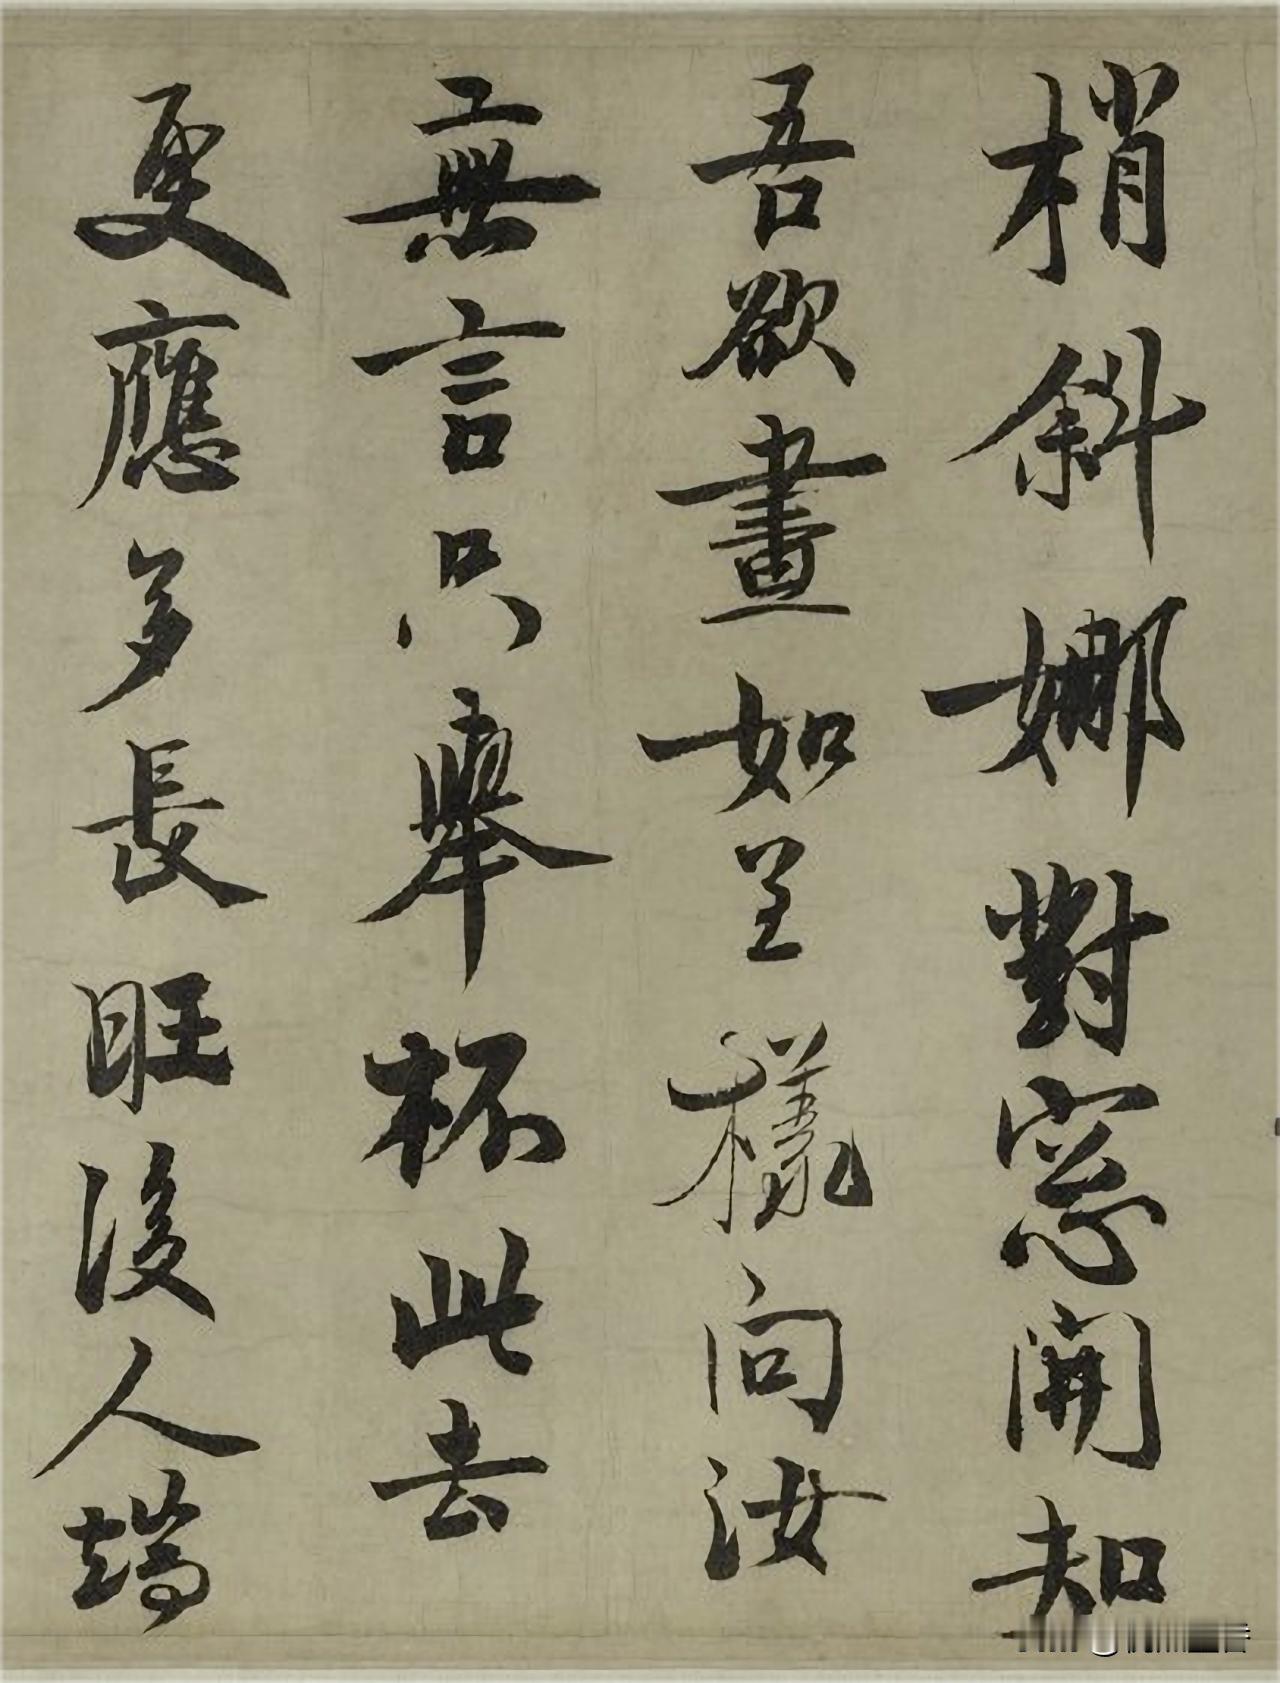 梢斜娜對窓開知
吾欲畫如呈樣向汝
無言只舉杯此去
更應多長旺後人端